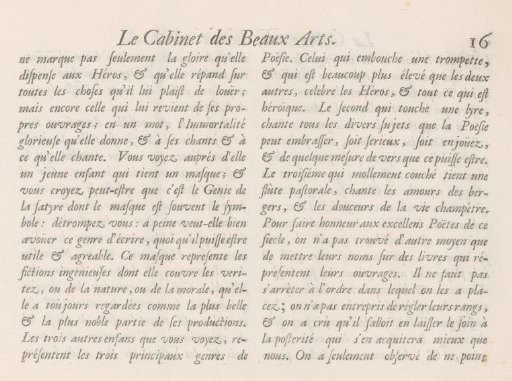 Le Cabinet des Beaux Arts.
16
ne marque pas seulement la gloire qu'elle
dispense aux Héros, & qu'elle répand sur
toutes les choses qu'il lui plaist de louër;
mais encore celle qui lui revient de ses pro-
pres ouvrages; en un mot, l'Immortalité
glorieuse qu'elle donne, & à ses chants & à
ce qu'elle chante. Vous voyez auprés d'elle
un jeune enfant qui tient un masque; &
vous croyez peut-estre que c'est le Genie de
la satyre dont le masque est souvent le sym-
bole: détrompez vous: à peine veut-elle bien
avouer ce genre d'écrire, quoi qu'il puisse estre
utile & agreable. Ce masque represente les
fictions ingenieuses dont elle couvre les veri-
tez, ou de la nature, ou de la morale, qu'el-
le a toûjours regardées comme la plus belle
& la plus noble partie de ses productions.
Les trois autres enfans que vous voyez, re-
présentent les trois principaux genres de
Poësie. Celui qui embouche une trompette,
& qui est beaucoup plus élevé que les deux
autres, celebre les Héros, & tout ce qui est
héroïque. Le second qui touche une lyre,
chante tous les divers sujets que la Poësie
peut embrasser, soit serieux, soit enjouez,
& de quelque mesure de vers que ce puisse estre.
Le troisiéme qui mollement couché tient une
flute pastorale, chante les amours des ber-
gers, & les douceurs de la vie champêtre.
Pour faire honneur aux excellens Poëtes de ce
siecle, on n'a pas trouvé d'autre moyen que
de mettre leurs noms sur des livres qui ré-
présentent leurs ouvrages. Il ne faut pas
s'arrêter à l'ordre dans lequel on les a pla-
cez; on n'a pas entrepris de régler leurs rangs,
& on a cru qu'il falloit en laisser le soin à
la posterité qui s'en acquitera mieux que
nous. On a seulement observé de ne point